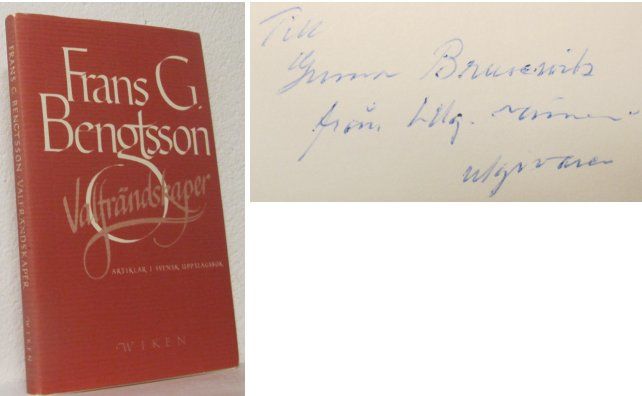 FRANS G. BENGTSSON VALFRÄNDSKAPER WIKEN
Frans G.
Bengtsson
Valfrändskaper
ARTIKLAR I SVENSK UPPSLAGSBOK
WIKEN
Till
Gunnar Brusewitz
från
utgivaren